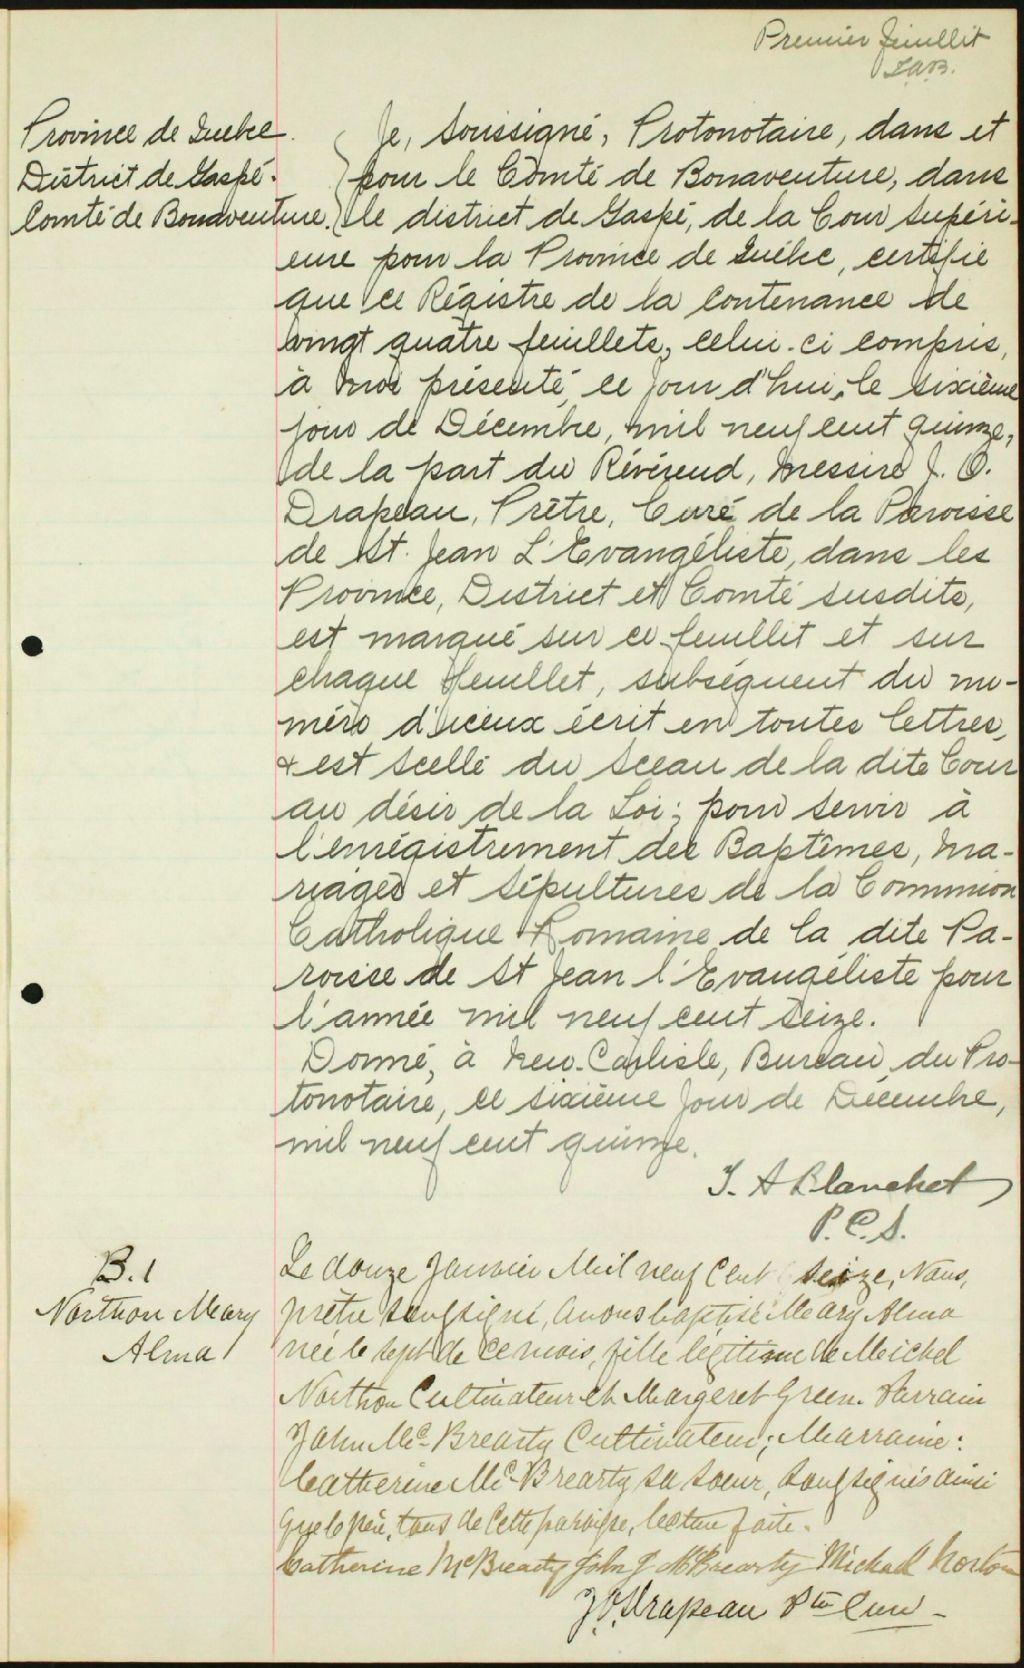 Premier feuillet
Province de Québec
District de Gaspé.
Comté de Bonaventure.
Je, soussigné, Protonotaire, dans et
pour le Comté de Bonaventure, dans
le district de Gaspé, de la Cour Supéri-
eure pour la Province de Québec, certifie
que ce Régistre de la contenance de
vingt quatre feuillets, celui-ci compris,
à moi présenté, ce jour d'hui, le sixième
jour de Décembre, mil neuf cent quinze,
de la part du Révérend, Messire J. O.
Drapeau, Prêtre, Curé de la Paroisse
de St. Jean L'Evangéliste, dans les
Province, District et Comté susdits,
est marqué sur ce feuillet et sur
chaque feuillet, subséquent du nu-
méro d'iceux écrit en toutes lettres,
& est scellé du sceau de la dite Cour
au désir de la Loi; pour servir à
l'enrégistrement des Baptêmes, Ma-
riages et Sépultures de la Communion
Catholique Romaine de la dite Pa-
roisse de St Jean l'Evangéliste pour
l'année mil neuf cent seize.
Donné, à New-Carlisle, Bureau du Pro-
tonotaire, ce sixième jour de Décembre,
mil neuf cent quinze.
J. A Blanchet
P.C.S.
B.1
Northon Mary
Alma
Le douze Janvier Mil neuf Cent seize, Nous,
prêtre soussigné, avons baptisé Mary Alma
née le sept de ce mois, fille légitime de Meichel
Northon Cultivateur et Margeret Green. Parrain
John Mc-Brearty Cultivateur; Marraine:
Catherine Mc-Brearty sa soeur, soussignés ainsi
que le père, tous de cette paroisse, lecture faite.
Catherine McBrearty John J McBrearty Michael Norton
J.O. Drapeau Ptre Curé